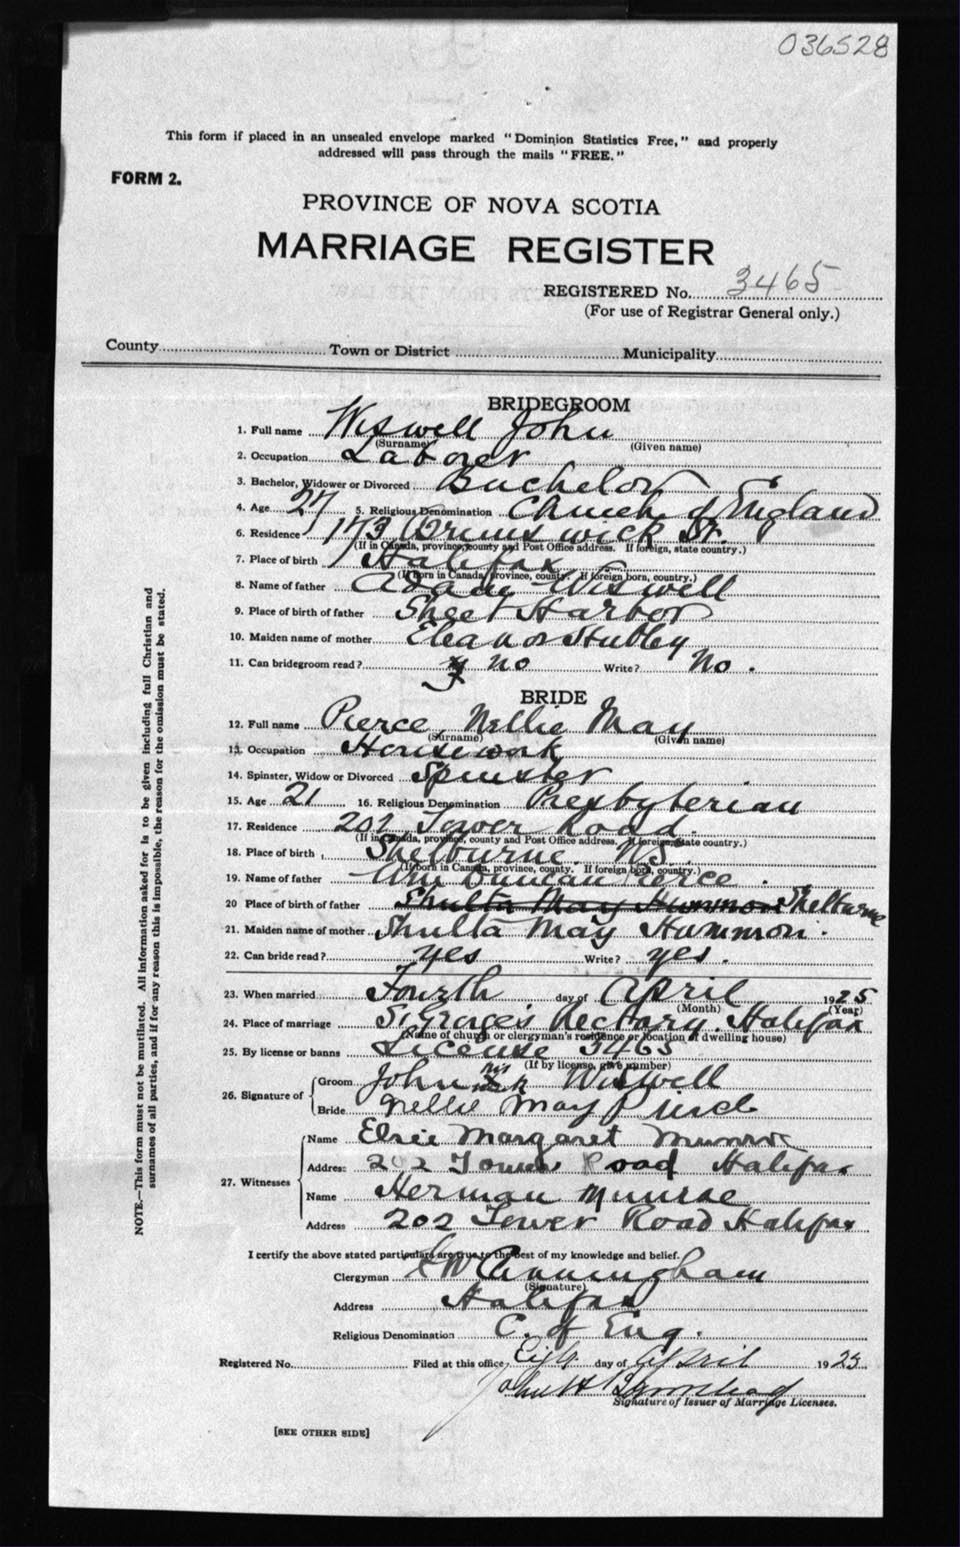 036528
This form if placed in an unsealed envelope marked "Dominion Statistics Free," and properly
addressed will pass through the mails "FREE."
FORM 2.
PROVINCE OF NOVA SCOTIA
MARRIAGE REGISTER
REGISTERED No. 3465
(For use of Registrar General only.)
County Town or District Municipality
BRIDEGROOM
1. Full name Wiswell John
(Surname) (Given name)
2. Occupation Laborer
3. Bachelor, Widower or Divorced Bachelor
4. Age 27 5. Religious Denomination Church of England
6. Residence 173 Brunswick St.
(If in Canada, province, county and Post Office address. If foreign, state country.)
7. Place of birth Halifax
(If born in Canada, province, county. If foreign born, country.)
8. Name of father Adam Wiswell
9. Place of birth of father Sheet Harbor
10. Maiden name of mother Eleanor Stubley
11. Can bridegroom read? no Write? No.
BRIDE
12. Full name Pierce, Nellie May
(Surname) (Given name)
13. Occupation Housework
14. Spinster, Widow or Divorced Spinster
15. Age 21 16. Religious Denomination Presbyterian
17. Residence 202 Tower Road.
(If in Canada, province, county and Post Office address. If foreign, state country.)
18. Place of birth Shelburne. N.S.
(If born in Canada, province, county. If foreign born, country.)
19. Name of father Wm Duncan Pierce.
20 Place of birth of father Shulta May Hammon Shelburne
21. Maiden name of mother Shulta May Hammon.
22. Can bride read? yes Write? yes.
23. When married Fourth day of April 1925
(Month) (Year)
24. Place of marriage St George's Rectory. Halifax
(Name of church or clergyman's residence or location of dwelling house)
25. By license or banns License 3465
(If by license, give number)
26. Signature of
Groom John Wiswell
Bride Nellie May Pierce
27. Witnesses
Name Elsie Margaret Munroe
Address 202 Tower Road Halifax
Name Herman Munroe
Address 202 Tower Road Halifax
I certify the above stated particulars are true to the best of my knowledge and belief.
Clergyman Cunningham
(Signature)
Address Halifax
Religious Denomination C. of Eng.
Registered No. Filed at this office day of April 1925
John H
Signature of Issuer of Marriage Licenses.
[SEE OTHER SIDE]
NOTE.—This form must not be mutilated. All information asked for is to be given including full Christian and
surnames of all parties, and if for any reason this is impossible, the reason for the omission must be stated.